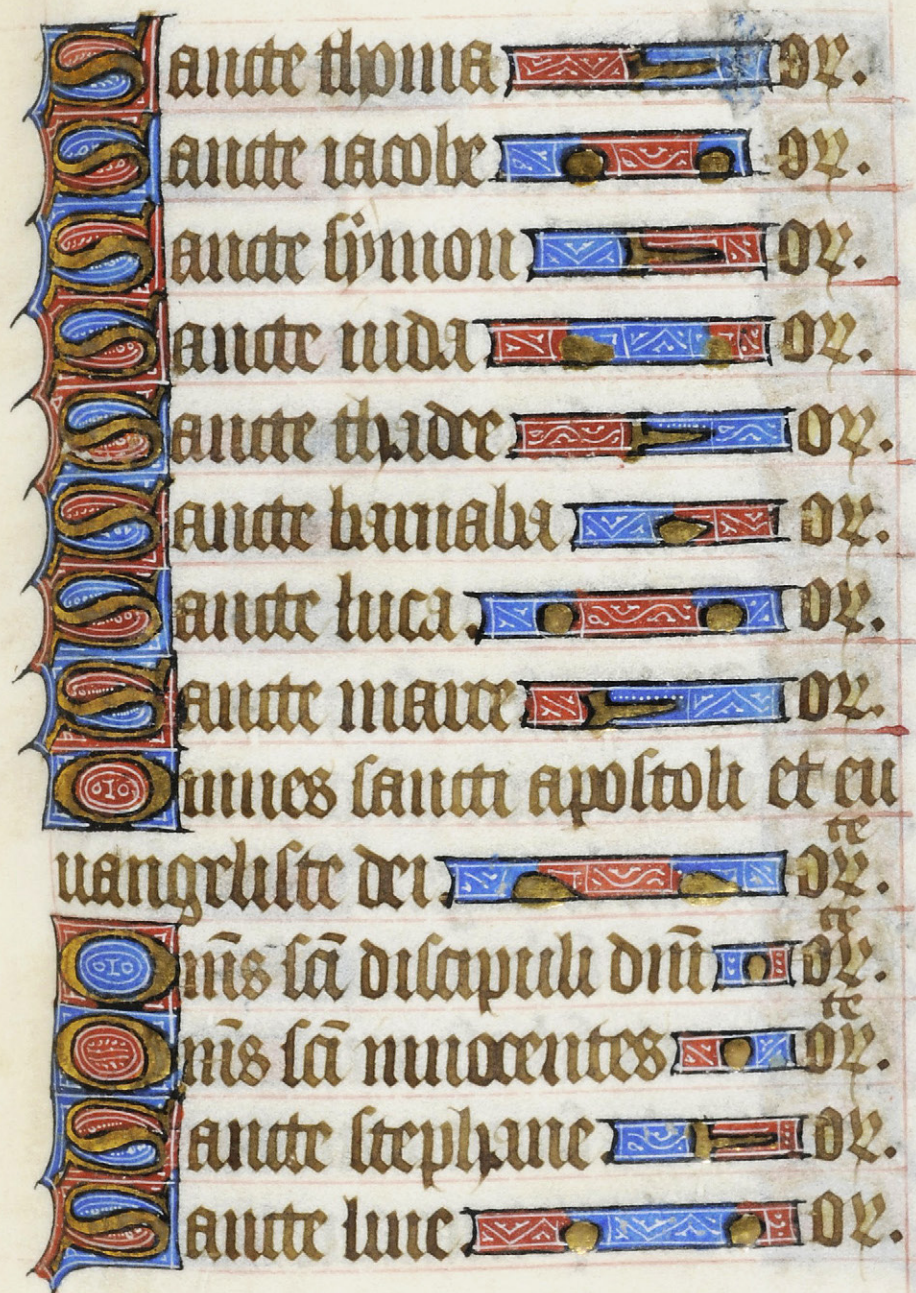 Sancte thoma or.
Sancte iacobe or.
Sancte symon or.
Sancte iuda or.
Sancte thadee or.
Sancte barnaba or.
Sancte luca. or.
Sancte marce or.
Omnes sancti apostoli et eu
uangeliste dei or^te.
Om̄s sc̄i discipuli dn̄i or^te.
Om̄s sc̄i innocentes or^te.
Sancte stephane or.
Sancte line. or.